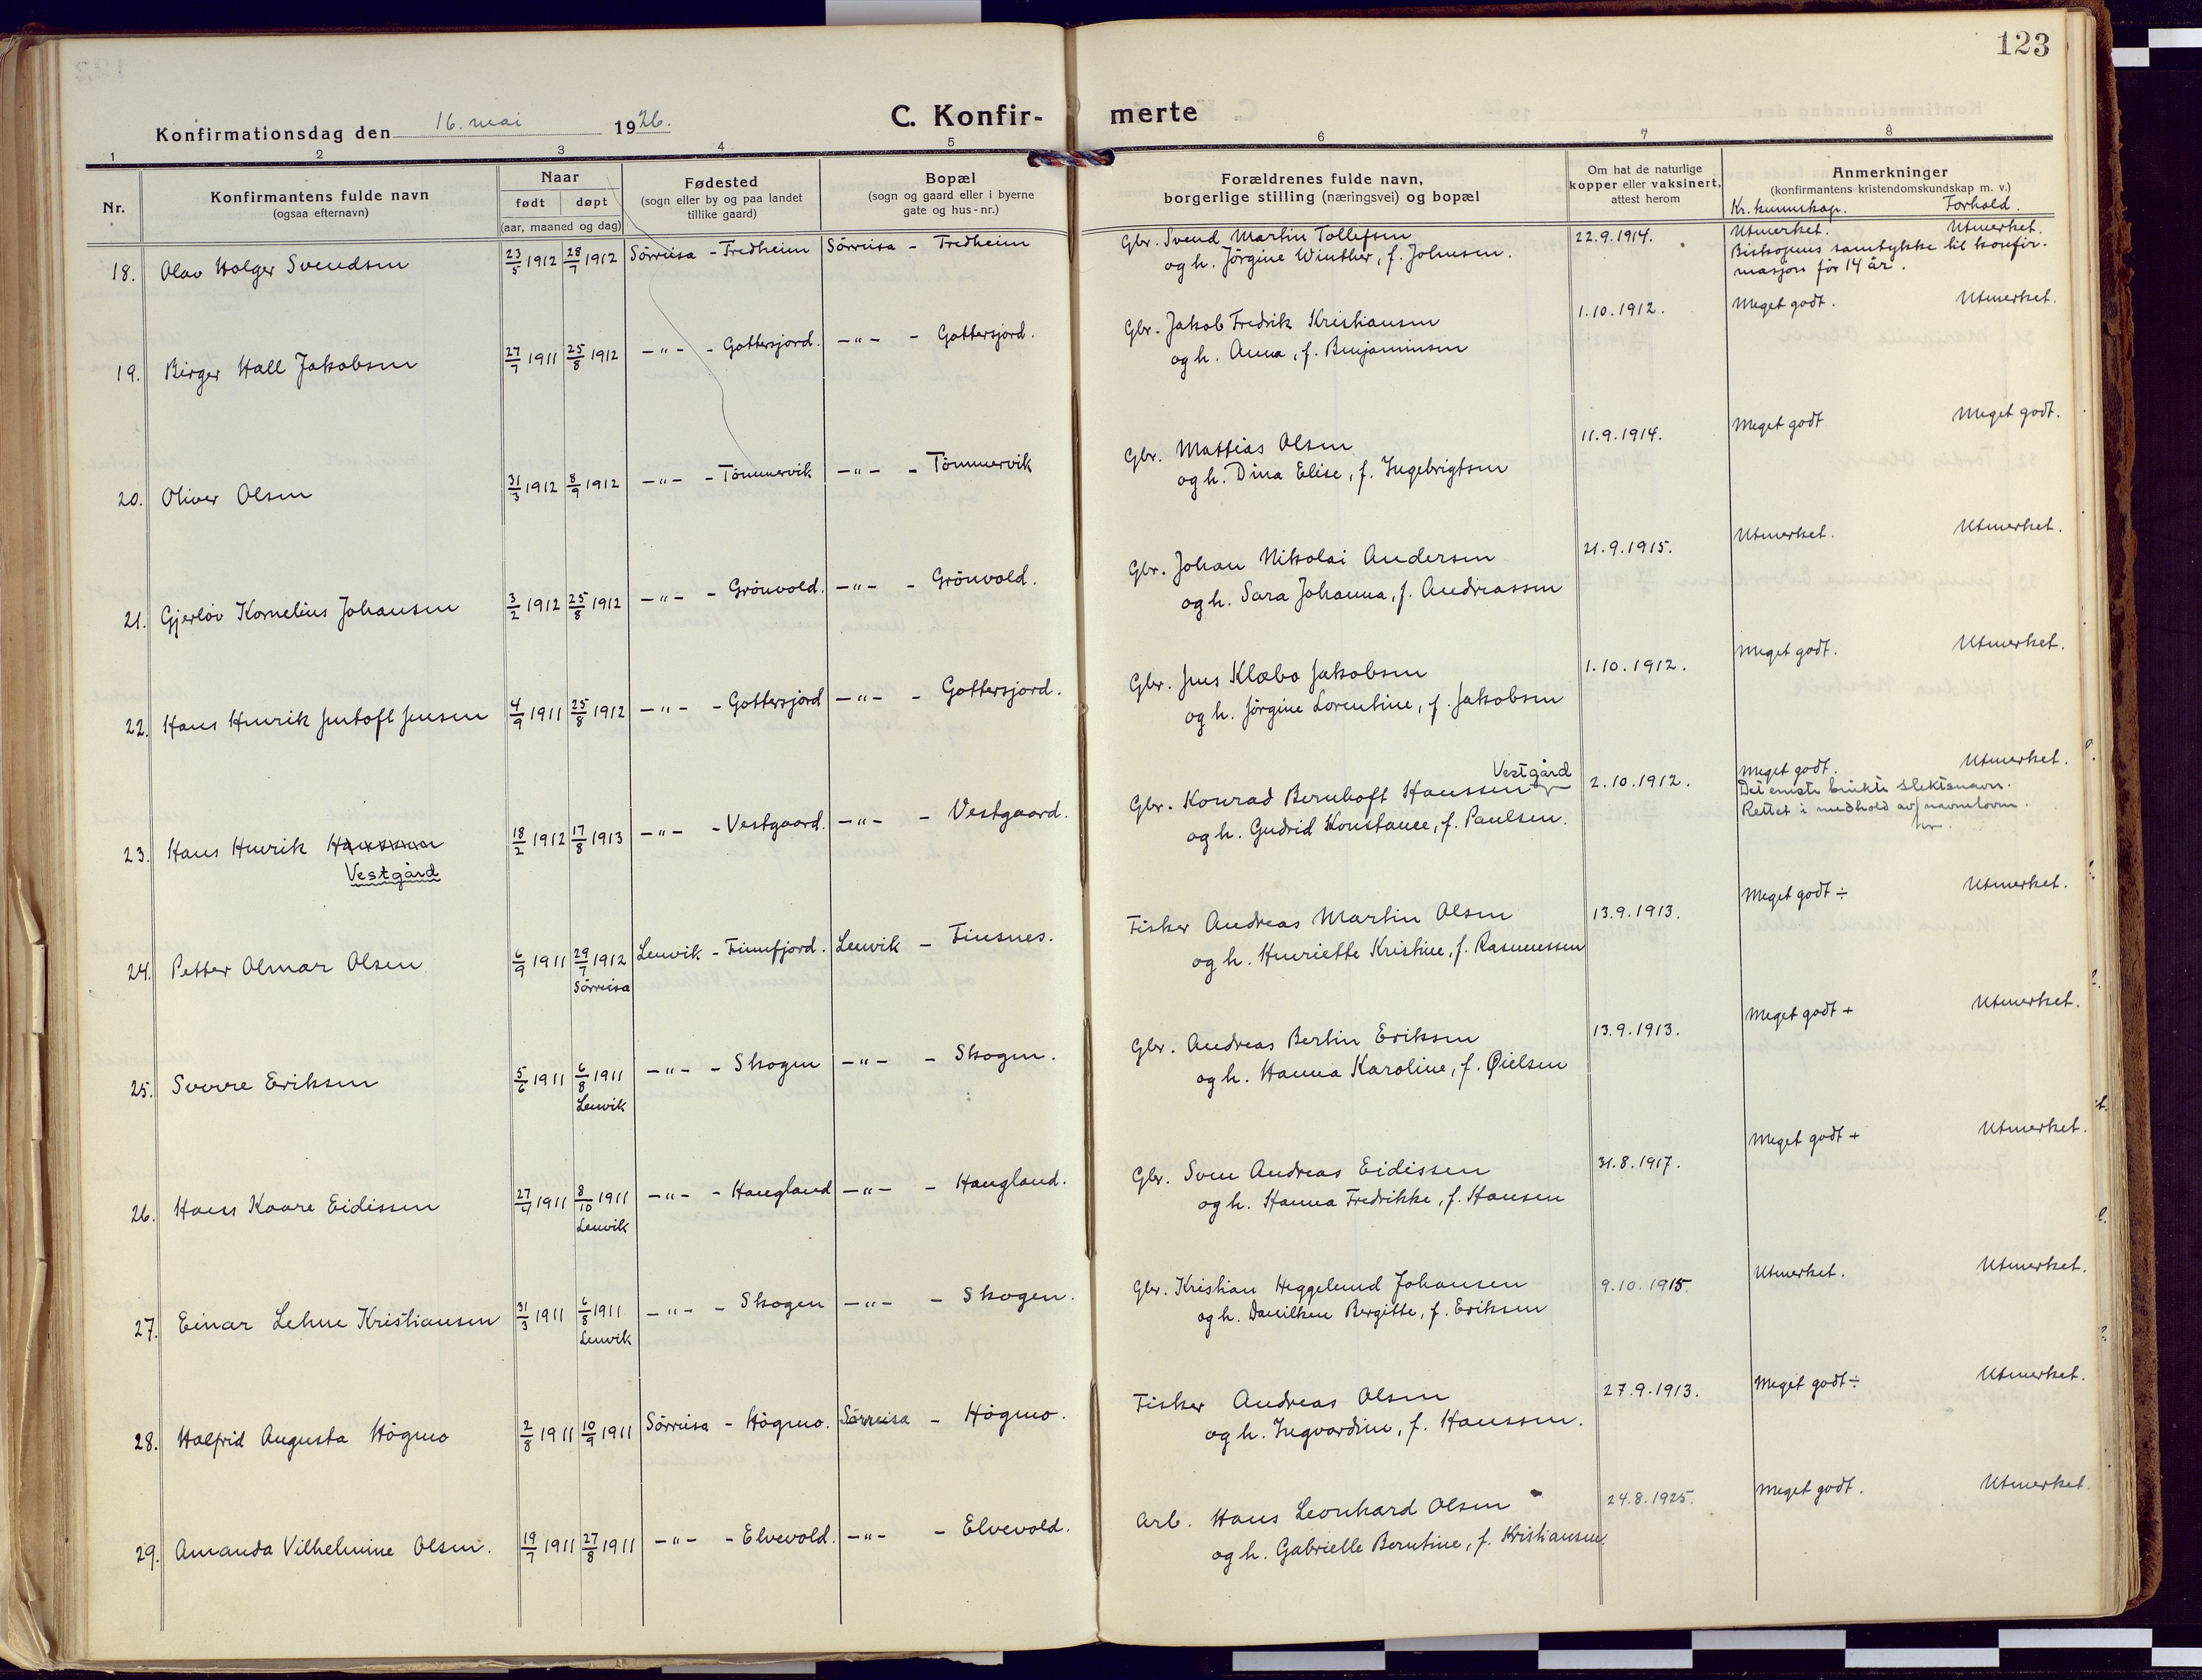 123
Konfirmationsdag den 16. mai 1926.
C. Konfir- merte
1 2 3 4 5 6 7 8
Nr.
Konfirmantens fulde navn
(ogsaa efternavn)
Naar
født døpt
(aar, maaned og dag)
Fødested
(sogn eller by og paa landet
tillike gaard)
Bopæl
(sogn og gaard eller i byerne
gate og hus-nr.)
Forældrenes fulde navn,
borgerlige stilling (næringsvei) og bopæl
Om hat de naturlige
kopper eller vaksinert,
attest herom
Anmerkninger
(konfirmantens kristendomskundskap m. v.)
Kr. kunnskap. Forhold.
18. Olav Holger Svendsen 23/5 1912 28/7 1912 Sörreisa - Fredheim Sörreisa - Fredheim
Gbr. Svend Martin Tollefsen
og h. Jörgine Winther, f. Johnsen.
22.9.1914.
Utmerket. Utmerket.
Biskopens samtykke til konfir-
masjon før 14 år.
19. Birger Hall Jakobsen 27/7 1911 25/8 1912 -"- - Gottersjord. -"- - Gottersjord.
Gbr. Jakob Fredrik Kristiansen
og h. Anna, f. Benjaminsen
1.10.1912.
Meget godt. Utmerket.
20. Oliver Olsen 31/3 1912 8/9 1912 -"- - Tömmervik -"- - Tömmervik
Gbr. Mattias Olsen
og h. Dina Elise, f. Ingebrigtsen
11.9.1914.
Meget godt Meget godt.
21. Gjerlöv Kornelius Johansen 3/2 1912 25/8 1912 -"- - Grönvold. -"- - Grönvold.
Gbr. Johan Nikolai Andersen
og h. Sara Johanna, f. Andreassen
21.9.1915.
Utmerket. Utmerket.
22. Hans Henrik Jentoft Jensen 4/9 1911 25/8 1912 -"- - Gottersjord -"- - Gottersjord.
Gbr. Jens Klæbo Jakobsen
og h. Jörgine Lorentine, f. Jakobsen
1.10.1912.
Meget godt. Utmerket.
23. Hans Henrik Hanssen 18/2 1912 17/8 1913 -"- - Vestgaard. -"- - Vestgaard.
Vestgård
Vestgård
Gbr. Konrad Bernhoft Hanssen
og h. Gudrid Konstance, f. Paulsen.
2.10.1912.
Meget godt. Utmerket.
Det eneste brukte slektsnavn.
Rettet i medhold av navneloven.
24. Petter Olmar Olsen 6/9 1911 29/7 1912 Lenvik - Finnfjord. Lenvik - Finsnes.
Sörreisa
Fisker Andreas Martin Olsen
og h. Henriette Kristine, f. Rasmussen
13.9.1913.
Meget godt ÷ Utmerket.
25. Sverre Eriksen 5/6 1911 6/8 1911 -"- - Skogen -"- - Skogen.
Lenvik
Gbr. Andreas Bertin Eriksen
og h. Hanna Karoline, f. Øielsen
13.9.1913.
Meget godt + Utmerket.
26. Hans Kaare Eidissen 27/4 1911 8/10 1911 -"- - Haugland -"- - Haugland.
Lenvik
Gbr. Sven Andreas Eidissen
og h. Hanna Fredrikke, f. Hansen
31.8.1917.
Meget godt + Utmerket.
27. Einar Lehne Kristiansen 31/3 1911 6/8 1911 -"- - Skogen -"- - Skogen.
Lenvik
Gbr. Kristian Heggelund Johansen
og h. Danilken Bergitte, f. Eriksen
9.10.1915.
Utmerket. Utmerket.
28. Halfrid Augusta Högmo 2/8 1911 10/9 1911 Sörreisa - Högmo. Sörreisa - Högmo.
Fisker Andreas Olsen
og h. Ingvardine, f. Hanssen.
27.9.1913.
Meget godt ÷ Utmerket.
29. Amanda Vilhelmine Olsen. 19/7 1911 27/8 1911 -"- - Elvevold. -"- - Elvevold.
Arb. Hans Leonhard Olsen
og h. Gabrielle Berntine, f. Kristiansen.
24.8.1925.
Meget godt. Utmerket.